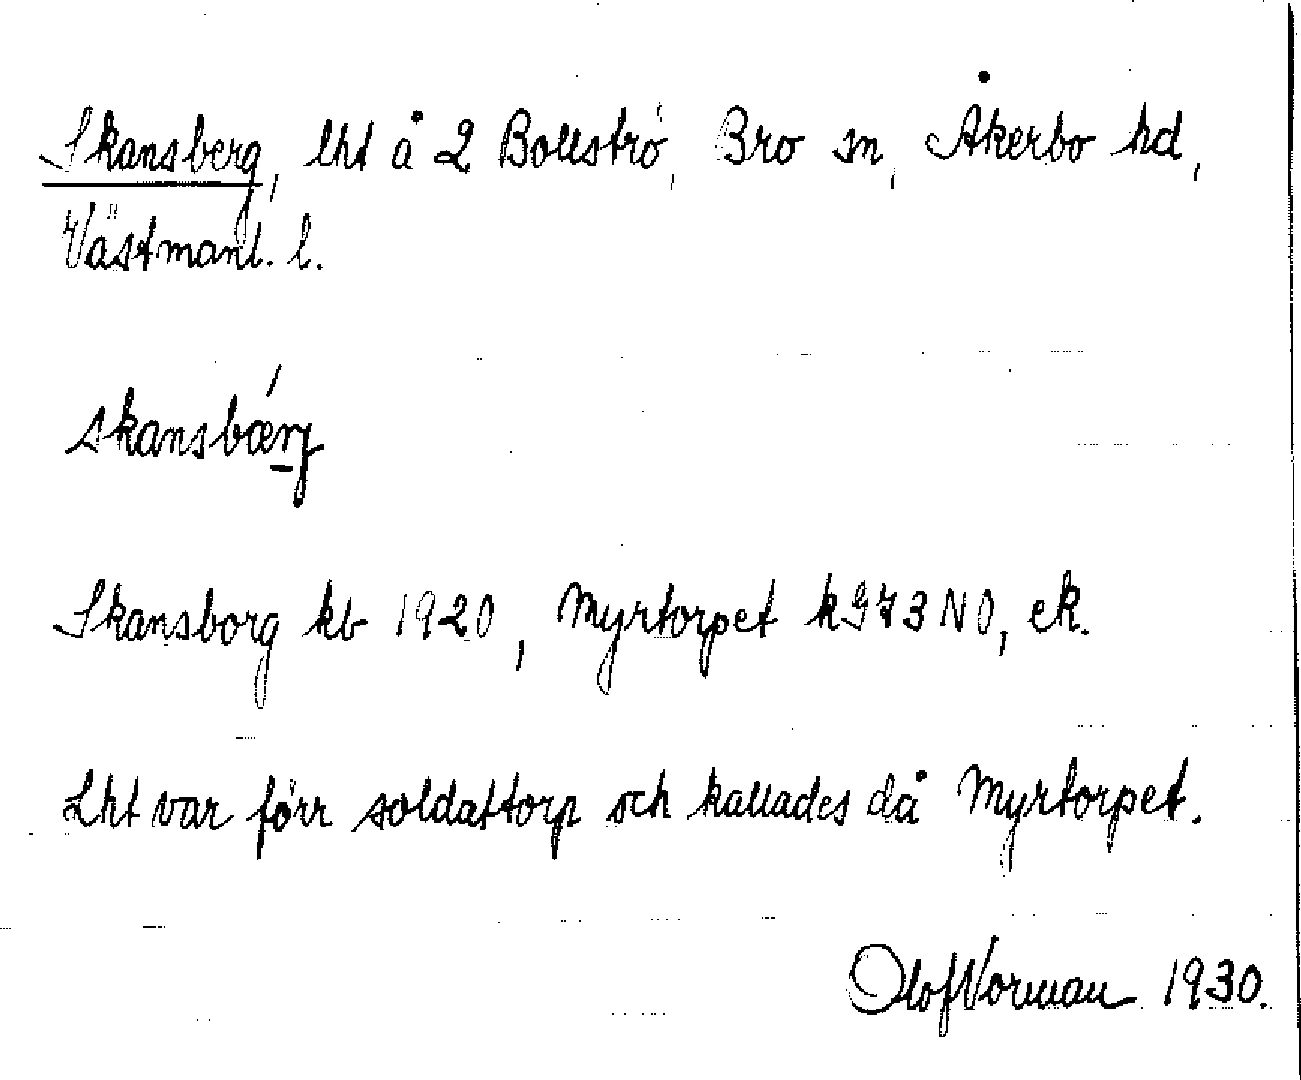 Skansberg, lht å 2 Bollströ, Bro sn, Åkerbo hd,
Västmanl. l.
skansbǽrj
Skansborg kb 1920, Myrtorpet k973NO, ek.
Lht var förr soldattorp och kallades då Myrtorpet.
Olof Norman 1930.